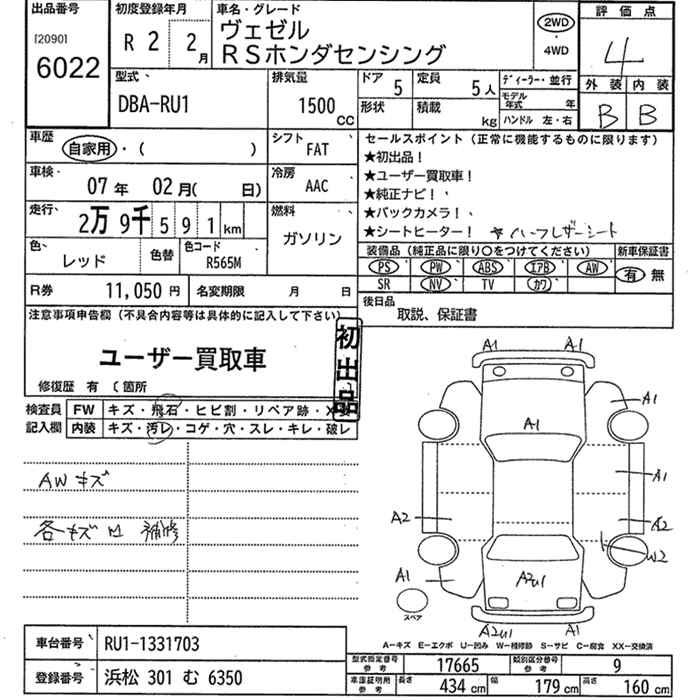 出品番号
[2090]
6022
初度登録年月
R 2 2月
車名・グレード
ヴェゼル
RSホンダセンシング
2WD
・
4WD
評価点
4
外装 内装
B B
型式
DBA-RU1
排気量
1500 CC
ドア 5
形状
定員 5人
積載 kg
ディーラー・並行
モデル年式 年
ハンドル 左・右
車歴
自家用・( )
シフト FAT
車検
07年 02月( 日)
冷房 AAC
走行
2万9千591km
燃料
ガソリン
色
レッド
色替
色コード
R565M
セールスポイント(正常に機能するものに限ります)
★初出品!
★ユーザー買取車!
★純正ナビ!
★バックカメラ!
★シートヒーター! ★ハーフレザーシート
装備品(純正品に限り○をつけてください)
新車保証書
PS PW ABS エアB AW
SR NV TV カワ
有 無
R券 11,050円
名変期限 月 日
後日品
取説、保証書
注意事項申告欄(不具合内容等は具体的に記入して下さい)
ユーザー買取車
初出品
修復歴 有 〔箇所
検査員記入欄
FW キズ・飛石・ヒビ割・リペア跡・X要
内装 キズ・汚レ・コゲ・穴・スレ・キレ・破レ
AWキズ
各キズ凹 補修
A1 A1
A1
A1
A1
A2
A2
W2
A1
A2U1
A2U1 A1
スペア
A-キズ E-エクボ U-凹み W-補修跡 S-サビ C-腐食 XX-交換済
車台番号 RU1-1331703
登録番号 浜松 301 む 6350
型式指定番号参考 17665
類別区分参考 9
車庫証明用参考
長さ 434cm
幅 179cm
高さ 160cm